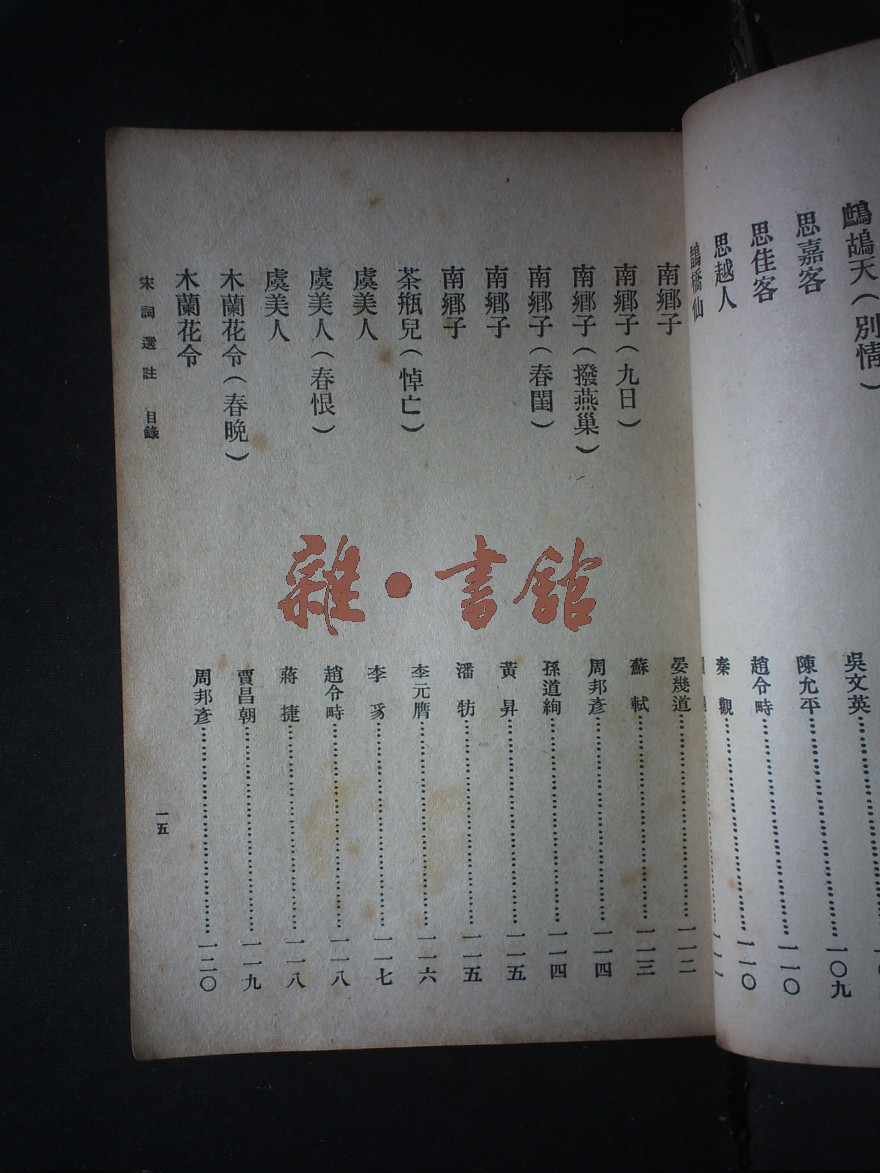 鷓鴣天(別情) 吳文英……一〇九
思嘉客 陳允平……一一〇
思佳客 趙令時……一一〇
思越人 秦觀……一一一
橋仙
南鄉子 晏幾道……一一二
南鄉子(九日) 蘇軾……一一三
南鄉子(撥燕巢) 周邦彥……一一四
南鄉子(春閨) 孫道絢……一一四
南鄉子 黃昇……一一五
南鄉子 潘牥……一一五
茶瓶兒(悼亡) 李元膺……一一六
虞美人 李豸……一一七
虞美人(春恨) 趙令時……一一八
虞美人 蔣捷……一一八
木蘭花令(春晚) 賈昌朝……一一九
木蘭花令 周邦彥……一二〇
宋詞選註 目錄 一五
雜·書館